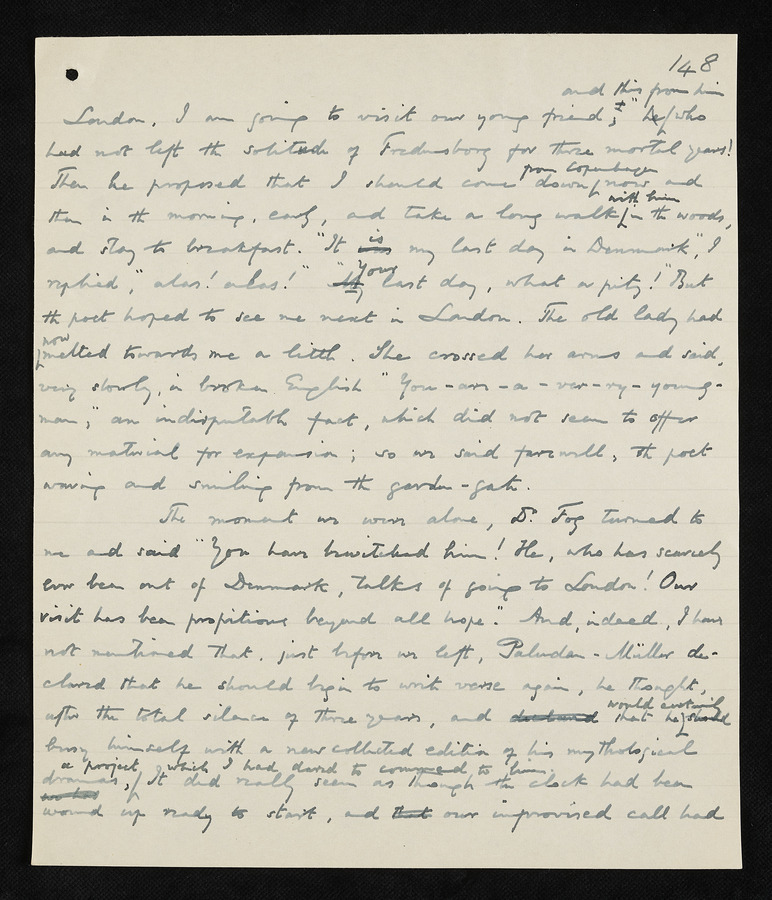 148
and this from him
London, I am going to visit our young friend;" he who
had not left the solitude of Fredensborg for three mortal years!
from Copenhagen
Then he proposed that I should come down now and
with him
then in the morning, early, and take a long walk in the woods,
and stay to breakfast. "It is my last day in Denmark", I
Your
replied, "alas! alas!" "My last day, what a pity!" But
the poet hoped to see me next in London. The old lady had
now
melted towards me a little. She crossed her arms and said,
very slowly, in broken English "You-are-a-ver-ry-young-
man," an indisputable fact, which did not seem to offer
any material for expansion; so we said farewell, the poet
waving and smiling from the garden-gate.
The moment we were alone, Dr. Fog turned to
me and said "You have bewitched him! He, who has scarcely
ever been out of Denmark, talks of going to London! Our
visit has been propitious beyond all hope." And, indeed, I have
not mentioned that, just before we left, Paludan-Müller de-
clared that he should begin to write verse again, he thought,
would certainly
after the total silence of three years, and declared that he should
busy himself with a new collected edition of his mythological
a project which I had dared to commend to him.
dramas, It did really seem as though the clock had been
wound up ready to start, and that our improvised call had